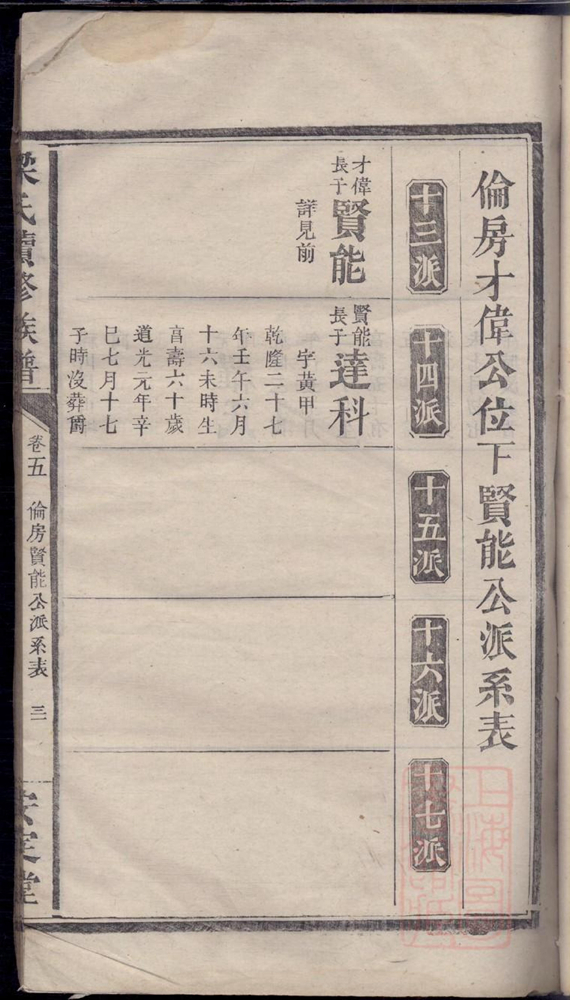 倫房才偉公位下賢能公派系表
十三派
十四派
十五派
十六派
十七派
才偉
長子
賢能
詳見前
賢能
長子
達科
字黃甲
乾隆二十七
年壬午六月
十六未時生
享壽六十歲
道光元年辛
巳七月十七
子時沒葬爵
梁氏續修族譜
卷五
倫房賢能公派系表
三
安定堂